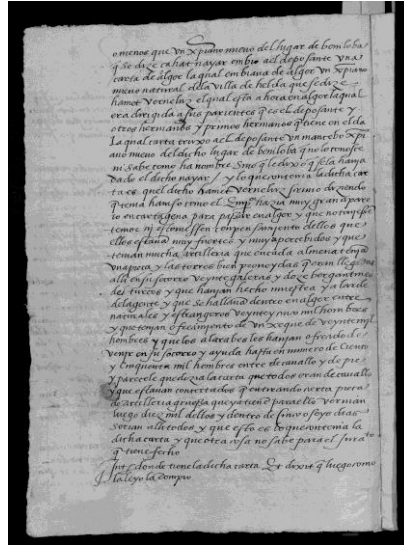 o menos que Vn xpiano nuevo del lugar de beniloba
q se dize cahat nayar enbio a el deposante vna
carta de alger la qual enbiaua de alger Vn xpiano
nueuo natural de la villa de helda que se dize
hamet Verneluz el qual esta ahora en alger la qual
era dirigida a sus parientes q es el deposante y
otros hermanos y primos hermanos q tiene en elda
La qual carta truxo a el deposante Vn mancebo xpi
ano nueuo del dicho lugar de beniloba q no lo conosce
ni sabe como ha nombre Sino q le dixo q se la hauia
dado el dicho nayar / y lo que contenia la dicha car
ta es quel dicho hamet Verneluz scriuio diziendo
q tenia auiso como el Emp hazia muy gran apare
jo en cartagena para passar en alger y que no
temor ni estouiessen con pensamiento dellos que
ellos estauan muy fuertes y muy apercebidos y que
tenian mucha artilleria que en cada almena tenian
vna pieça y las torres bien proueydas q eran llegadas
alli en su socorro veynte galeras y doze bergantines
de turcos y que hauian hecho muestra y alarde
de la gente y que se hallaua dentro en alger entre
naturales y estrangeros veynte y mil hombres
y que tenian ofrecimiento de Vn xeque de veynte mil
hombres y que los alarabes les hauian ofrecido de
venir en su socorro y ayuda hasta en numero de Ciento
y Cinquenta mil hombres entre de cauallo y de pie
y parecele que dezia la carta que todos eran de cauallo
y que estauan concertados q entrando cierta pieça
de artilleria gruessa que ya tienen para ello vernian
luego diez mil dellos y dentro de cinco o seys dias
serian alli todos y que esto es lo que contenia la
dicha carta y que otra cosa no sabe para el jurato
q tiene fecho
Intº donde tiene la dicha carta Et dixit q luego como
la leyo la rompio